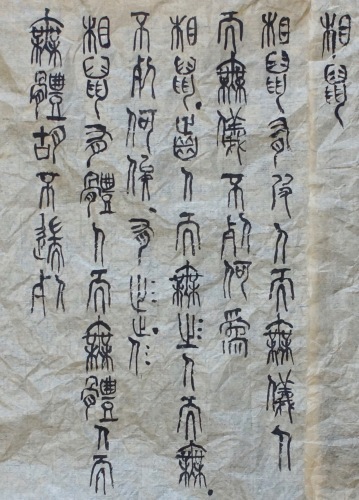 相鼠
相鼠有皮人而無儀人
而無儀不死何為
相鼠齒人而無止人而無
不死何俟有止
相鼠有體人而無體人而
無體胡不遄死